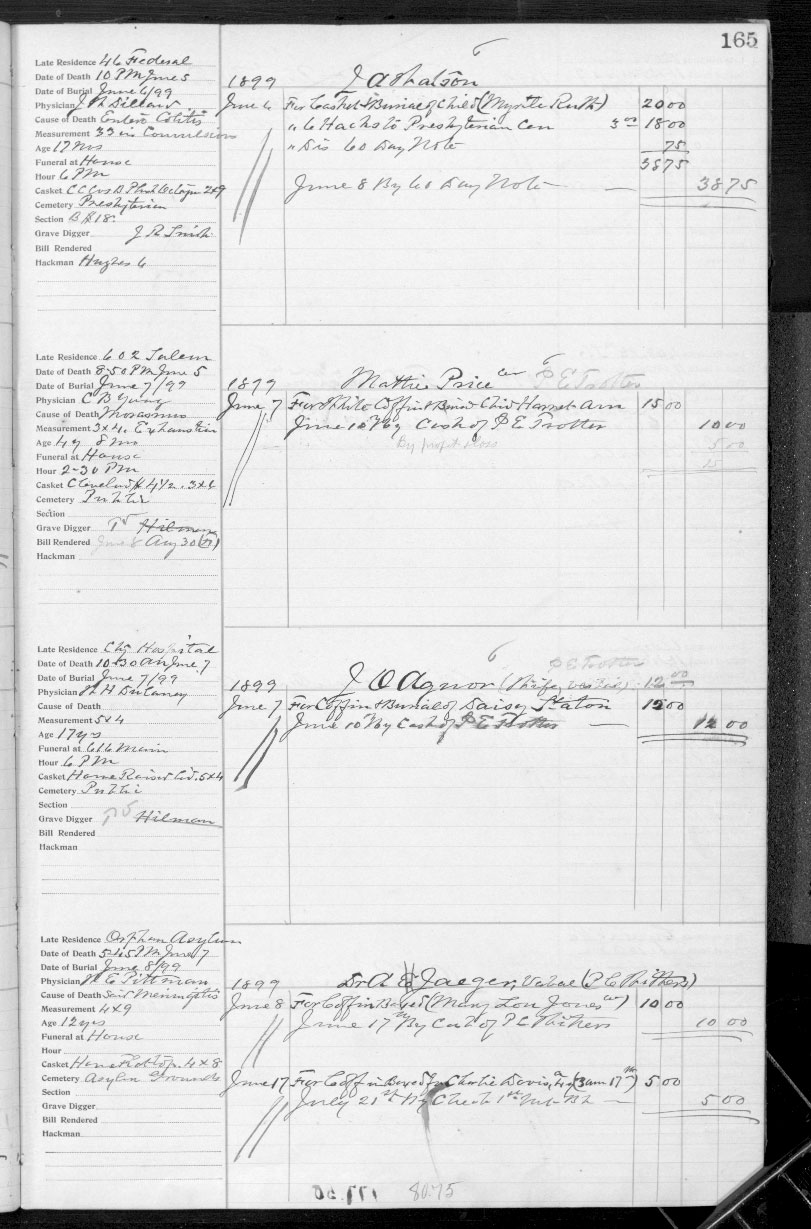 165
Late Residence 46 Federal
Date of Death 10 PM June 5
Date of Burial June 6/99
Physician
Cause of Death Entero Colitis
Measurement 33 in Convulsions
Age 17 mos
Funeral at House
Hour 6 PM
Casket
Cemetery Presbyterian
Section
Grave Digger J R Smith
Bill Rendered
Hackman Hughes 6
6
1899
June 6 For Casket & Burial of Child (Myrtle Ruth) 20 00
" 6 Hacks to Presbyterian Cem 3 00 18 00
" Dis 60 day Note 75
38 75
June 8 By 60 day Note — 38 75
Late Residence 602 Salem
Date of Death 8-50 PM June 5
Date of Burial June 7/99
Physician C B Young
Cause of Death Marasmus
Measurement 3x4. Exhaustion
Age 4 y 8 mo
Funeral at House
Hour 2-30 PM
Casket Cleveland 4 1/2. 3x6
Cemetery Public
Section
Grave Digger Hilman
Bill Rendered June 8 Aug 30
Hackman
6
1899 Mattie Price P E Trotter
June 7 For White Coffin & Burial Child Harriet Ann 15 00
June 10th By Cash of P E Trotter 10 00
By profit & loss 5 00
15
Late Residence City Hospital
Date of Death 10-30 AM June 7
Date of Burial June 7/99
Physician H Dulaney
Cause of Death
Measurement 5x4
Age 17 ys
Funeral at 616 Main
Hour 6 PM
Casket 5x4
Cemetery Public
Section
Grave Digger Hilman
Bill Rendered
Hackman
6
P E Trotter
1899 J O Agnor 12 00
June 7 For Coffin & Burial of Daisy Staton 12 00
June 10th By Cash of P E Trotter — 12 00
Late Residence Orphan Asylum
Date of Death 5-45 PM June 7
Date of Burial June 8/99
Physician E Pittman
Cause of Death Meningitis
Measurement 4x9
Age 12 yrs
Funeral at House
Hour
Casket 4x8
Cemetery Asylum Grounds
Section
Grave Digger
Bill Rendered
Hackman
1899 Dr A E Jaeger,
June 8 For Coffin Boxed (Mary Lou Jones) 10 00
June 17th By Cash of P E 10 00
June 17 For Coffin Boxed for Charlie Davis, (3 am 17th) 5 00
July 21st By Check 1st — 5 00
177.50 80.75